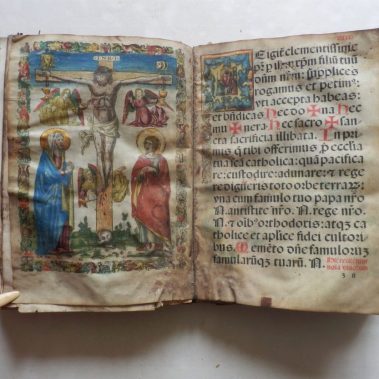 INRI
Te igit̃ clementissime
p̃r p iħm xp̃m filiũ tuũ
dñm nr̃m: supplices
rogamus et petim⁹:
vt accepta habeas:
et bñdicas hec ✠ do na hec
✠ mu nera hec ✠ san cta
sacrificia illibata. In pri-
mis q̃ tibi offerimus p ecclesia
tua sctã catholica: quã pacifica-
re: custodire: adunare: et
regere digneris toto orbe terrarum
vna cum famulo tuo papa nr̃o
N. antistite nr̃o N. rege nr̃o
N. et oĩbꝰ orthodoxis: atq ca-
tholice et aplice fidei cultori-
bus. Memẽto dñe famulorũ
famularũq tuarũ. N.